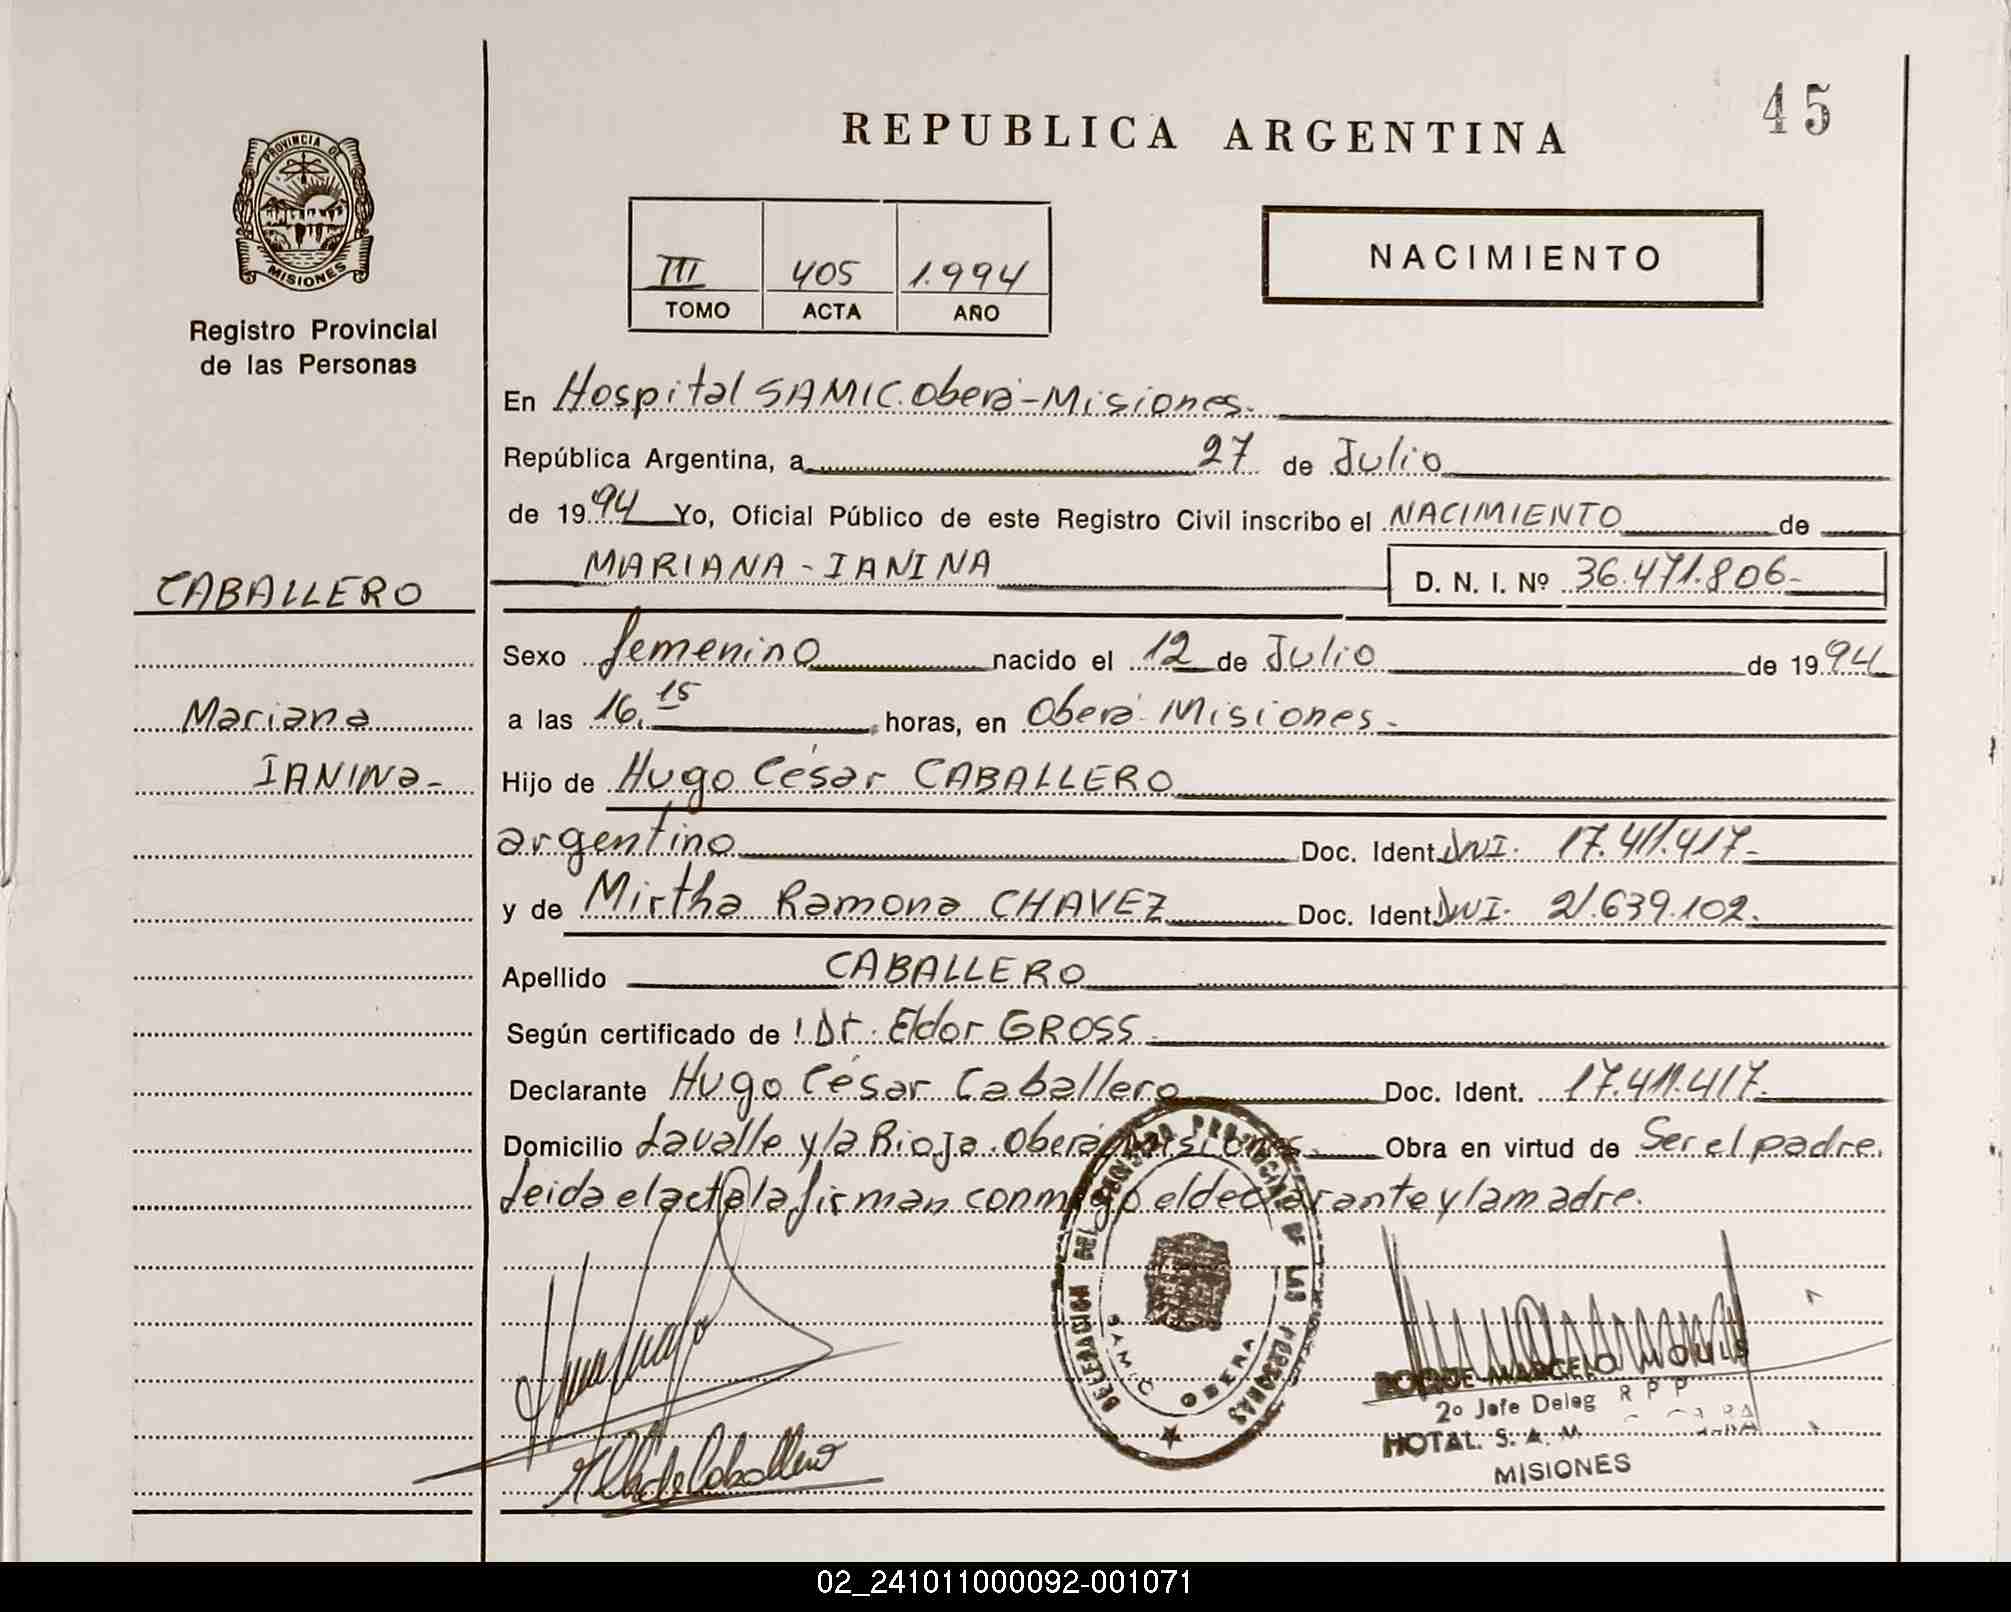 45
REPUBLICA ARGENTINA
PROVINCIA DE
MISIONES
Registro Provincial
de las Personas
III 405 1.994
TOMO ACTA AÑO
NACIMIENTO
En Hospital SAMIC. Oberá-Misiones.
República Argentina, a 27 de Julio
de 1994 Yo, Oficial Público de este Registro Civil inscribo el NACIMIENTO de
MARIANA-IANINA D. N. I. Nº 36.471.806-
CABALLERO
Mariana
IANINA-
Sexo femenino nacido el 12 de Julio de 1994
a las 16.15 horas, en Oberá-Misiones-
Hijo de Hugo César CABALLERO
argentino Doc. Ident. DNI. 17.411.417-
y de Mirtha Ramona CHAVEZ Doc. Ident. DNI. 21.639.102.
Apellido CABALLERO
Según certificado de Dr. Eldor GROSS.
Declarante Hugo César Caballero Doc. Ident. 17.411.417-
Domicilio Lavalle y la Rioja. Oberá Misiones. Obra en virtud de Ser el padre.
Leida el acta la firman conmigo el declarante y la madre.
DELEGACION DEL REGISTRO PROVINCIAL DE LAS PERSONAS
SAMIC OBERA
ROQUE MARCELO
2º Jefe Deleg R P P
HOTAL. S. A. M
MISIONES
de Caballero
02_241011000092-001071